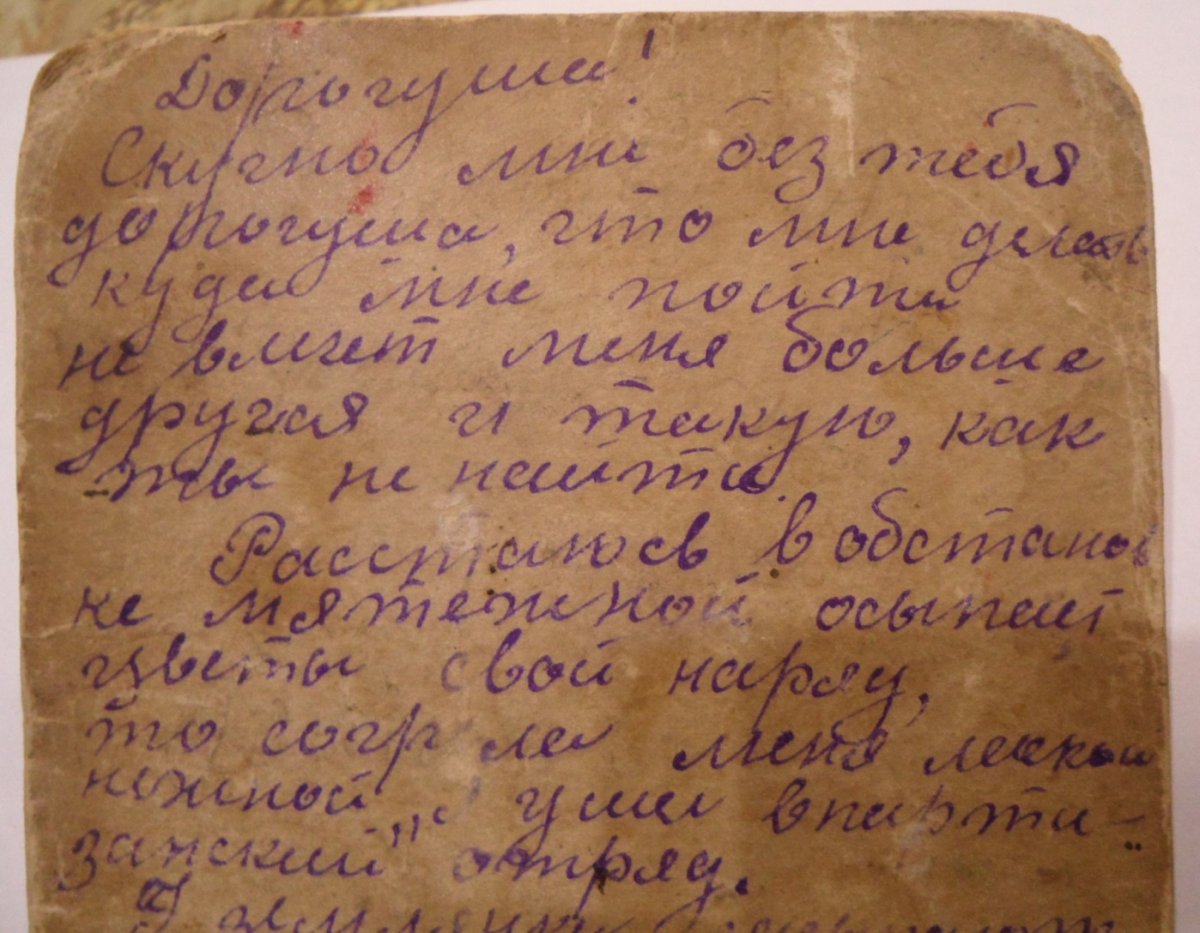 Дорогуша!
Скучно мне без тебя
дорогуша, что мне делать
куда мне пойти
не влечет меня больше
другая и такую, как
ты не найти.
Расстаюсь в обстанов
ке мятежной осыпает
цветы свой наряд,
то согрела меня лаской
нежной, ушла в парти-
занский" отряд.